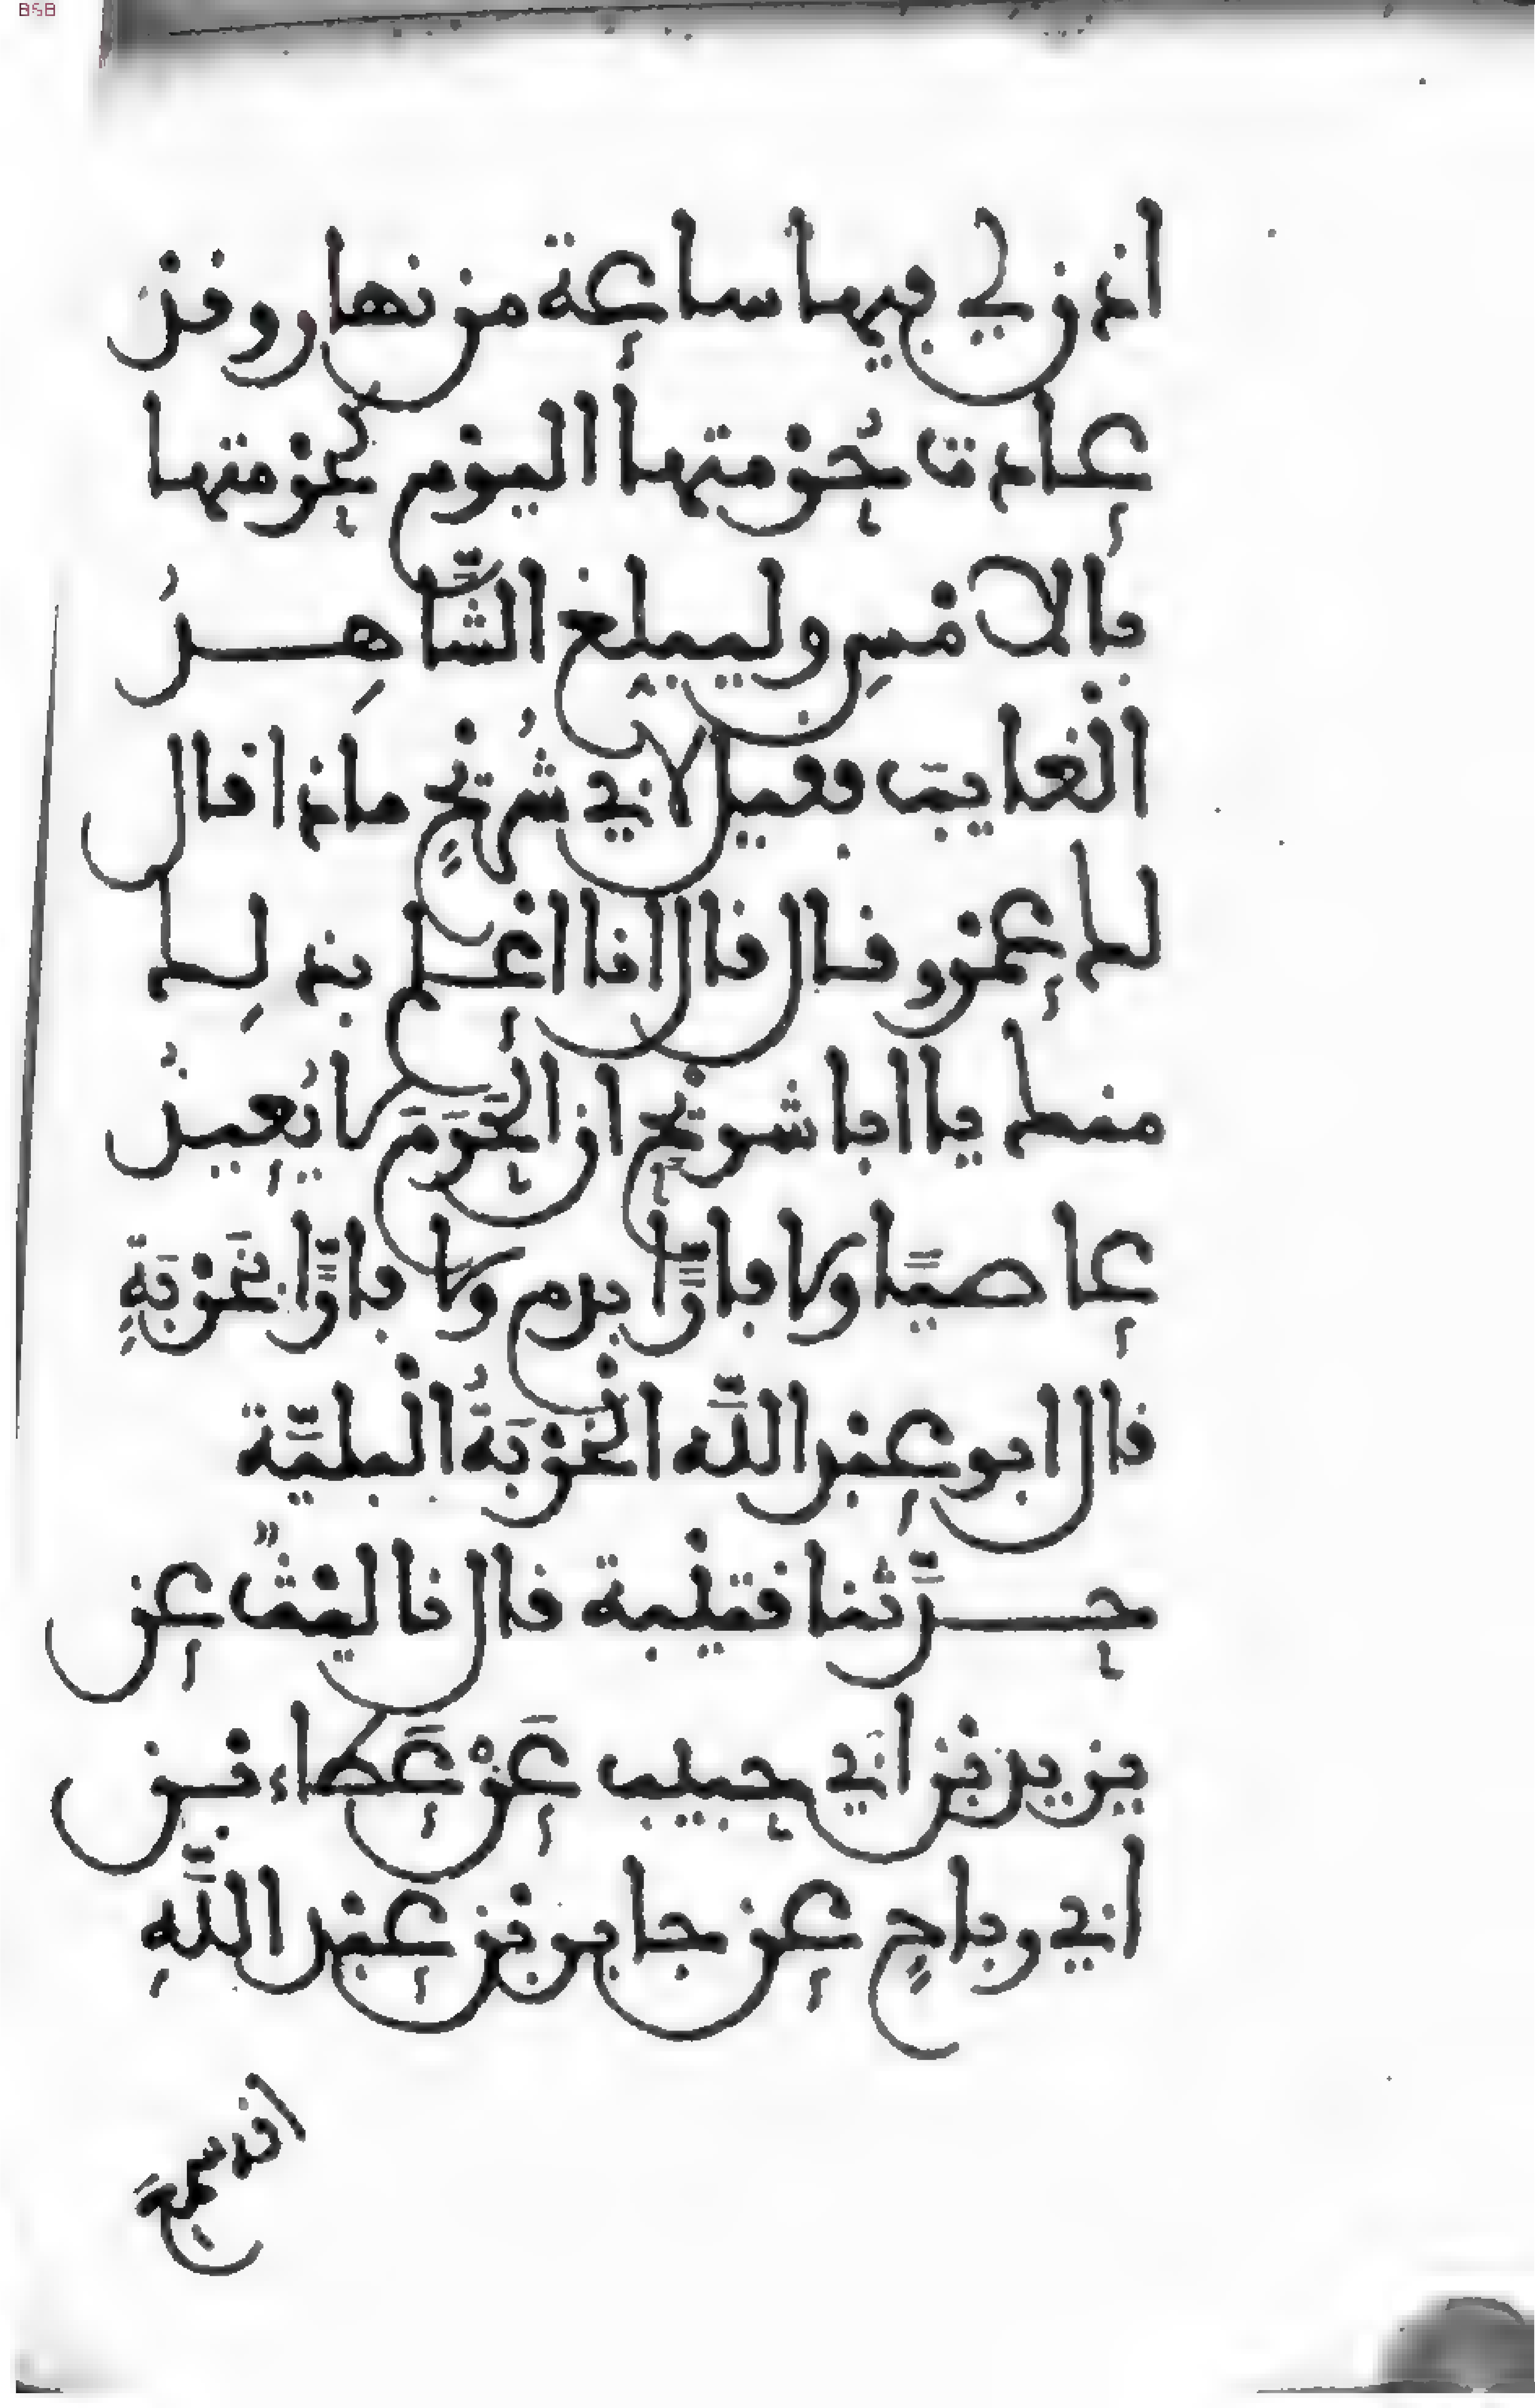 BSB
اذن لي فيها ساعة من نهار وقد
عادت حُرْمتها اليوم كحرْمتها
بالامْسِ وليبلغ الشَّاهِدُ
الْغايبَ فقيل لابي شُرَيْحٍ ماذا قال
لك عمْرو قال قال انا اعْلم بذلِك
منك يا ابا شريح ان الْحَرَمَ لا يُعيذُ
عاصيًا ولا فارًّا بدم ولا فارًّا بخَرْبَةٍ
قال ابو عبْد اللَّه الْخَرْبَةُ الْبليَّة
حدَّثنا قتيْبة قال نا ليْثٌ عن
يزيد بْن ابَي حبيب عَنْ عَطاء بْن
ابي رباحٍ عن جابر بْن عبْد اللَّهِ
انه سمِعَ